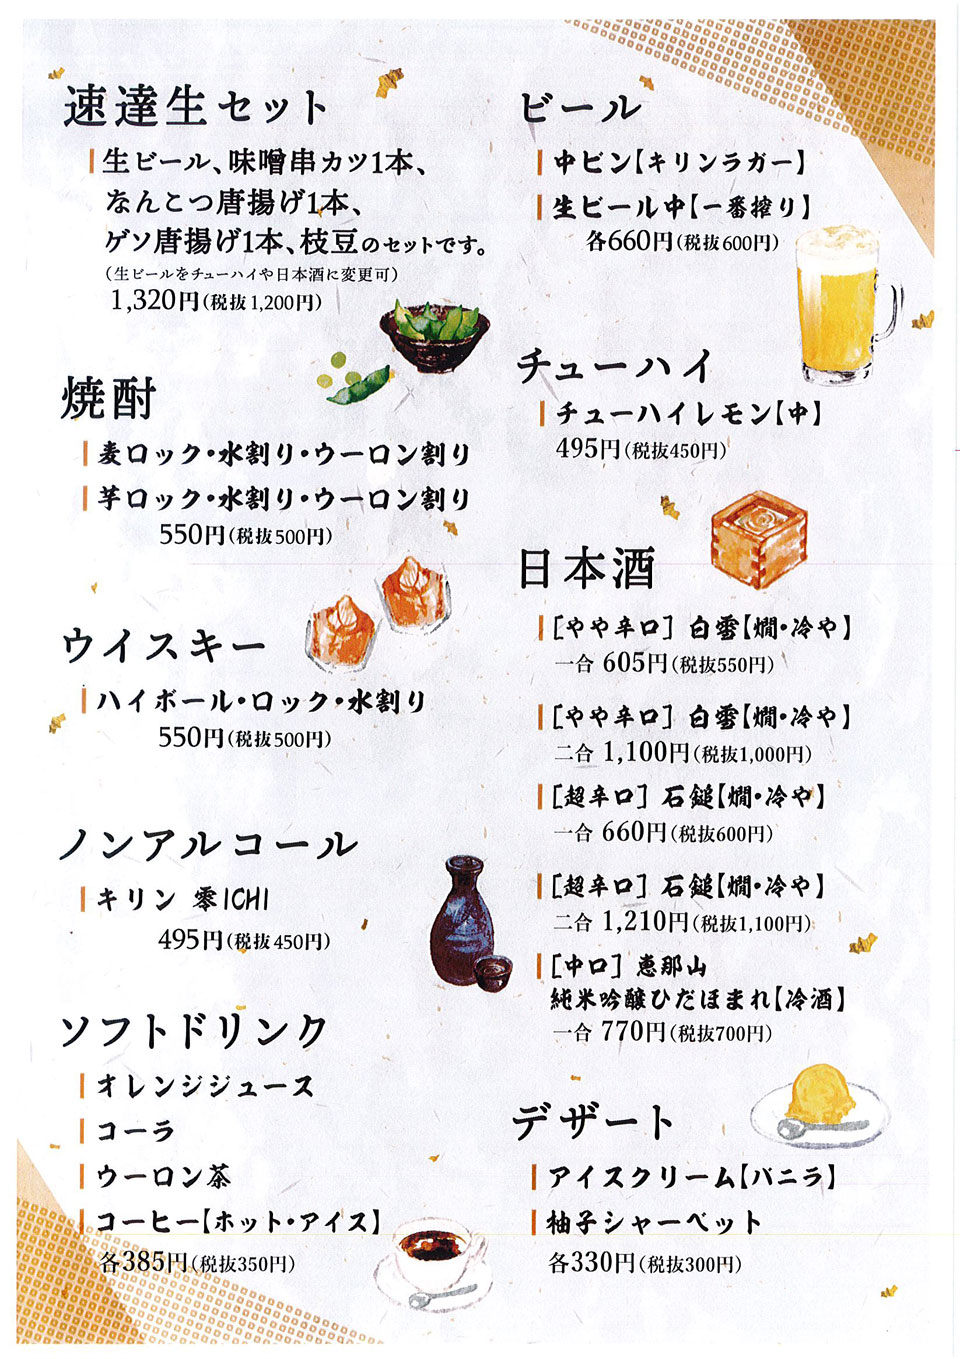 速達生セット
生ビール、味噌串カツ1本、
なんこつ唐揚げ1本、
ゲソ唐揚げ1本、枝豆のセットです。
（生ビールをチューハイや日本酒に変更可）
1,320円（税抜1,200円）
焼酎
麦ロック・水割り・ウーロン割り
芋ロック・水割り・ウーロン割り
550円（税抜500円）
ウイスキー
ハイボール・ロック・水割り
550円（税抜500円）
ノンアルコール
キリン 零ICHI
495円（税抜450円）
ソフトドリンク
オレンジジュース
コーラ
ウーロン茶
コーヒー【ホット・アイス】
各385円（税抜350円）
ビール
中ビン【キリンラガー】
生ビール中【一番搾り】
各660円（税抜600円）
チューハイ
チューハイレモン【中】
495円（税抜450円）
日本酒
［やや辛口］ 白雪【燗・冷や】
一合 605円（税抜550円）
［やや辛口］ 白雪【燗・冷や】
二合 1,100円（税抜1,000円）
［超辛口］ 石鎚【燗・冷や】
一合 660円（税抜600円）
［超辛口］ 石鎚【燗・冷や】
二合 1,210円（税抜1,100円）
［中口］ 恵那山
純米吟醸ひだほまれ【冷酒】
一合 770円（税抜700円）
デザート
アイスクリーム【バニラ】
柚子シャーベット
各330円（税抜300円）